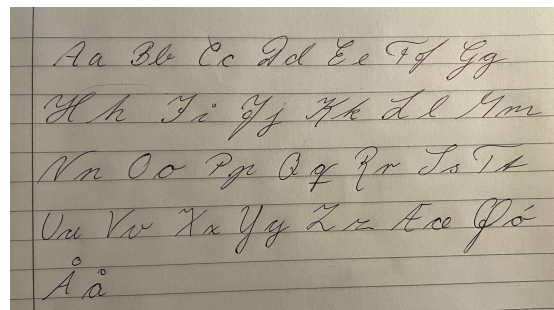 Aa Bb Cc Dd Ee Ff Gg
Hh Ii Jj Kk Ll Mm
Nn Oo Pp Qq Rr Ss Tt
Uu Vv Xx Yy Zz Ææ Øø
Åå